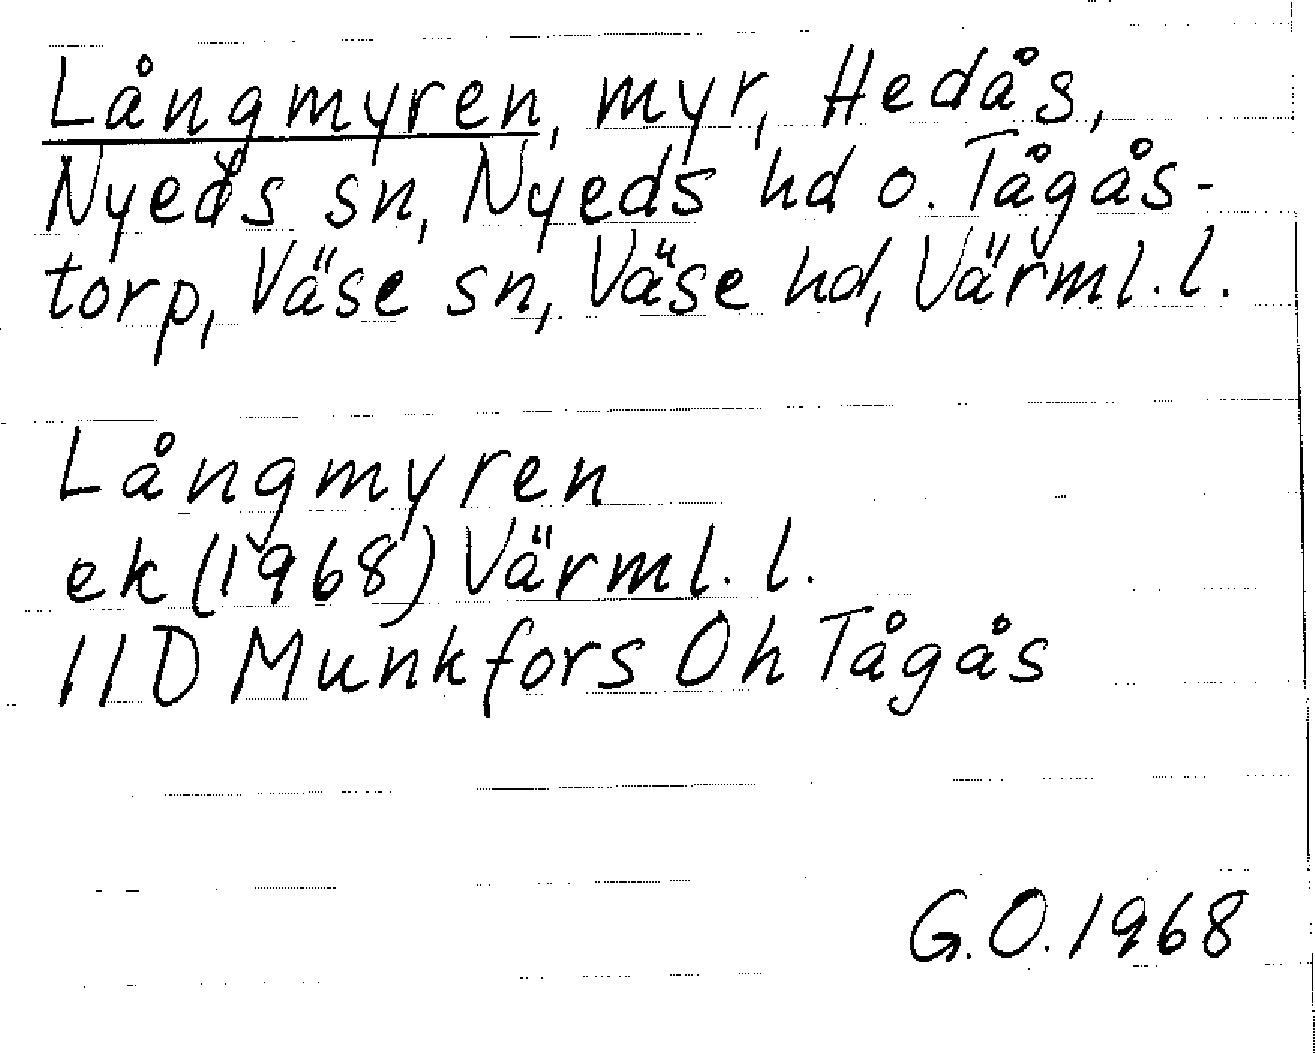 Långmyren, myr, Hedås,
Nyeds sn, Nyeds hd o. Tågås-
torp, Väse sn, Väse hd, Värml. l.
Långmyren
ek (1968) Värml. l.
11D Munkfors Oh Tågås
G.O. 1968